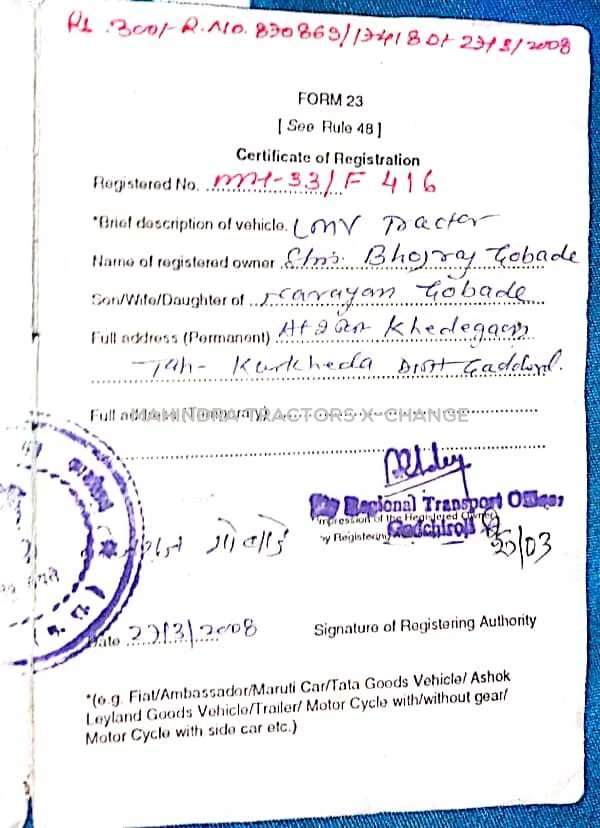 Rs. 300/- R.No. 870869/17418 Dt 27/3/2008
FORM 23
[ See Rule 48 ]
Certificate of Registration
Registered No. MH-33/F 416
*Brief description of vehicle. LMV Tractor
Name of registered owner Shri. Bhojraj Gobade
Son/Wife/Daughter of Narayan Gobade
Full address (Permanent) At Khedegaon
Tah- Kurkheda Distt
Full address (Temporary)
MAHINDRA TRACTORS X-CHANGE
Regional Transport Officer
impression of the Registered Owner
by Registering
Gadchiroli
गोबाडे
Date 27/3/2008
Signature of Registering Authority
*(e.g. Fiat/Ambassador/Maruti Car/Tata Goods Vehicle/ Ashok
Leyland Goods Vehicle/Trailer/ Motor Cycle with/without gear/
Motor Cycle with side car etc.)